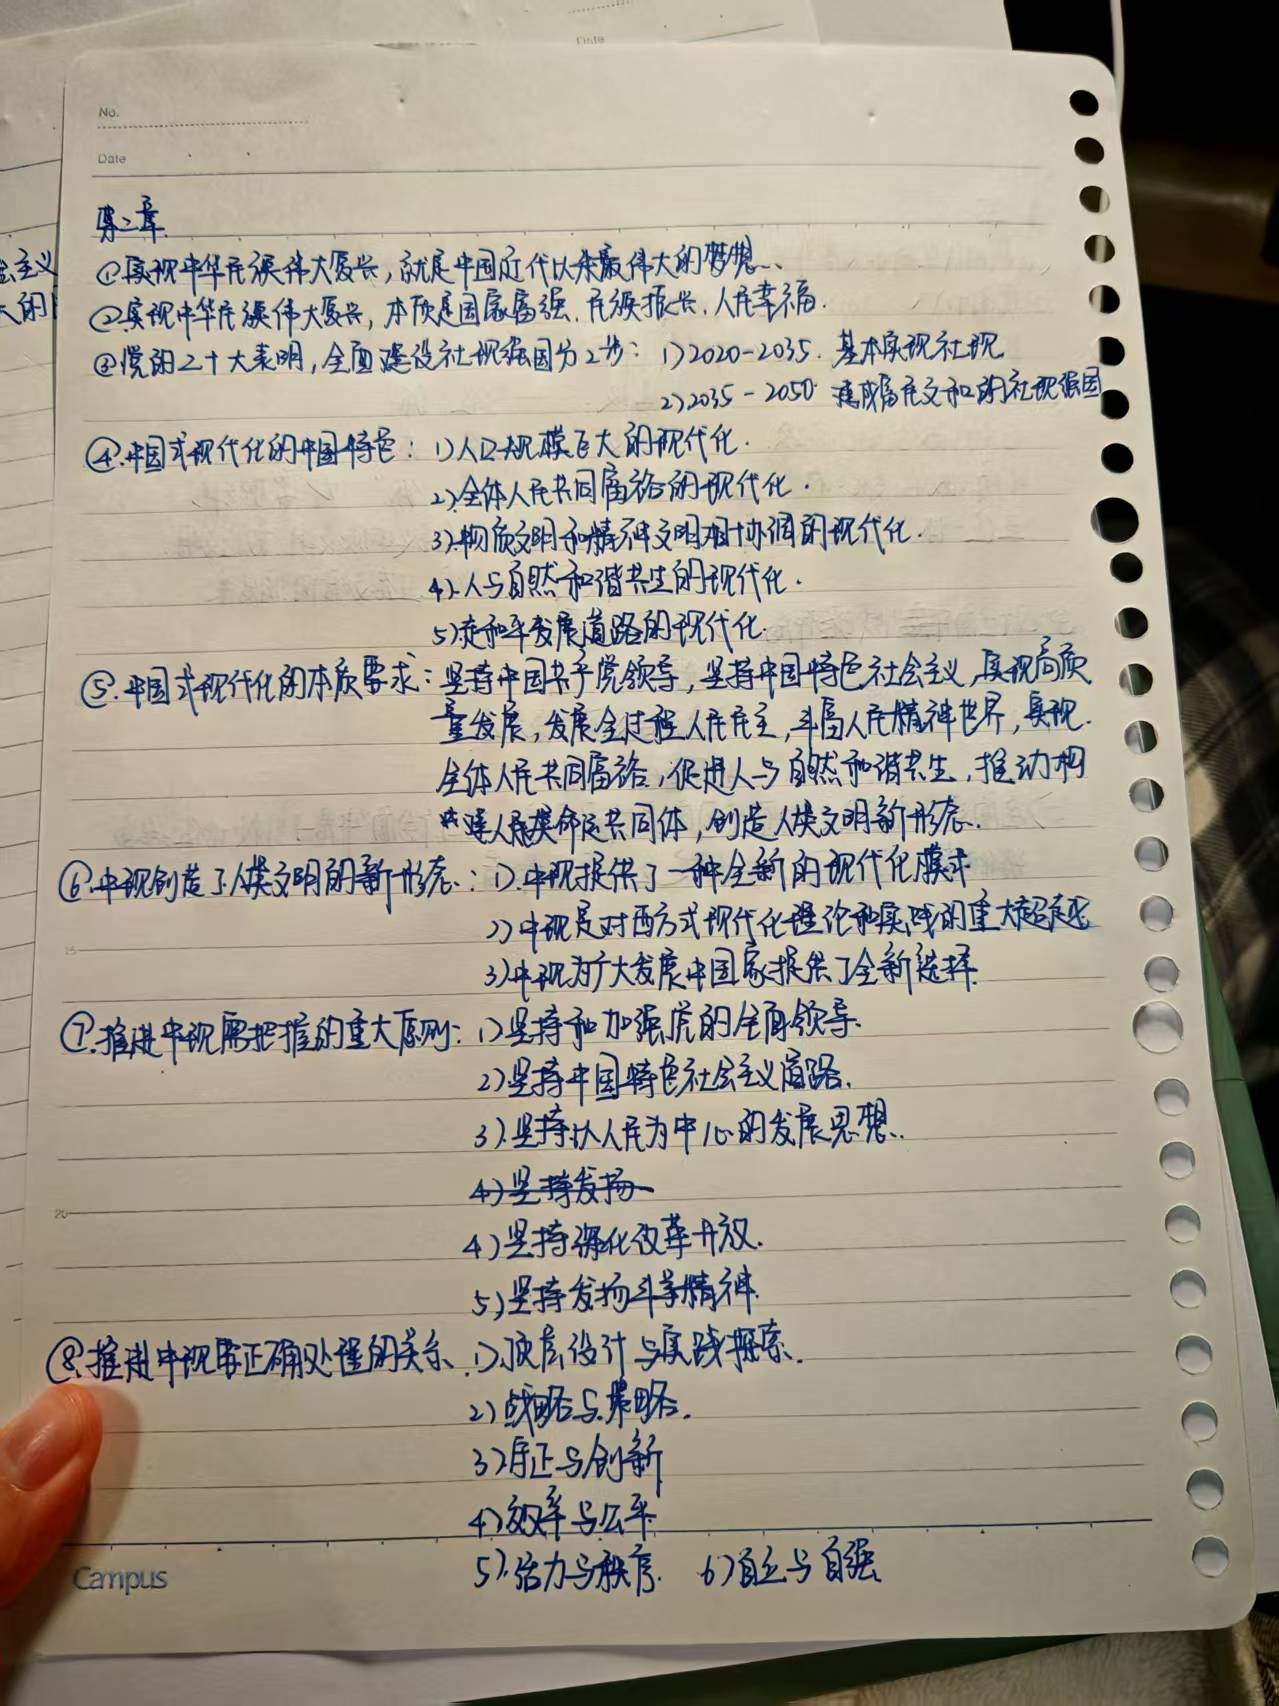 Date
No.
Date
主义
大的
第二章
①实现中华民族伟大复兴，就是中国近代以来最伟大的梦想.
②实现中华民族伟大复兴，本质是国家富强、民族振兴、人民幸福.
③党的二十大表明，全面建设社现强国分2步：1)2020-2035. 基本实现社现
2)2035-2050. 建成富民文和的社现强国
④.中国式现代化的中国特色：1)人口规模巨大的现代化.
2)全体人民共同富裕的现代化.
3).物质文明和精神文明相协调的现代化.
4).人与自然和谐共生的现代化.
5)走和平发展道路的现代化.
⑤.中国式现代化的本质要求：坚持中国共产党领导，坚持中国特色社会主义，实现高质
量发展，发展全过程人民民主，丰富人民精神世界，实现
全体人民共同富裕，促进人与自然和谐共生，推动构
建人类命运共同体，创造人类文明新形态.
⑥.中现创造了人类文明的新形态：1).中现提供了一种全新的现代化模式
2)中现是对西方式现代化理论和实践的重大超越
3)中现为广大发展中国家提供了全新选择.
⑦.推进中现需把握的重大原则：1)坚持和加强党的全面领导.
2)坚持中国特色社会主义道路.
3).坚持以人民为中心的发展思想.
4)坚持发扬
4)坚持深化改革开放.
5)坚持发扬斗争精神.
⑧.推进中现需正确处理的关系. 1).顶层设计与实践探索.
2)战略与策略.
3)守正与创新
4)效率与公平.
5).活力与秩序. 6)自立与自强
15
20
Campus